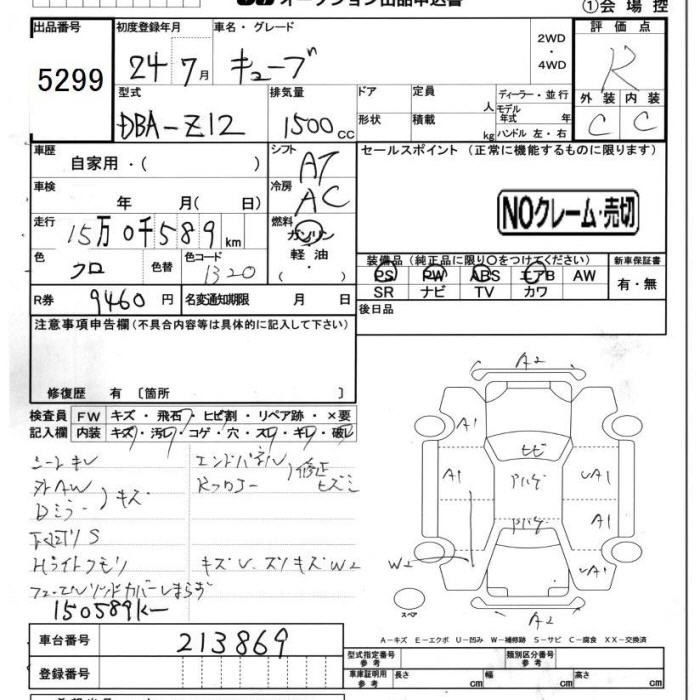 オークション出品申込書
①会場控
出品番号 初度登録年月 車名・グレード 評価点
5299 24年 7月 キューブ 2WD・4WD R
型式 排気量 ドア 定員 人 ディーラー・並行 外装 内装
DBA-Z12 1500cc 形状 積載 kg モデル年式 年 ハンドル 左・右 C C
車歴 自家用・( ) シフト AT セールスポイント (正常に機能するものに限ります)
車検 年 月( 日) 冷房 AC
NOクレーム・売切
走行 15万0千589km 燃料 ガソリン 軽油・( )
色 クロ 色替 色コード 1320
装備品(純正品に限り○をつけてください) 新車保証書
PS PW ABS エアB AW 有・無
SR ナビ TV カワ
R券 9460円 名変通知期限 月 日 後日品
注意事項申告欄(不具合内容等は具体的に記入して下さい)
修復歴 有 〔箇所 〕
検査員 FW キズ・飛石・ヒビ割・リペア跡・×要
記入欄 内装 キズ・汚レ・コゲ・穴・スレ・キレ・破レ
シートキレ
外AW
Dミラー キズ
エンドパネル 修正
Rフロアー ヒズミ
下回りS
Hライトクモリ キズU.スリキズW2
150589km
A2
A1 ヒビ
A1 Aハゲ UA1
A1
W2 UA1
スペア A2
A-キズ E-エクボ U-凹み W-補修跡 S-サビ C-腐食 XX-交換済
車台番号 213869
登録番号
型式指定番号 参考 類別区分番号 参考
車庫証明用 参考 長さ cm 幅 cm 高さ cm